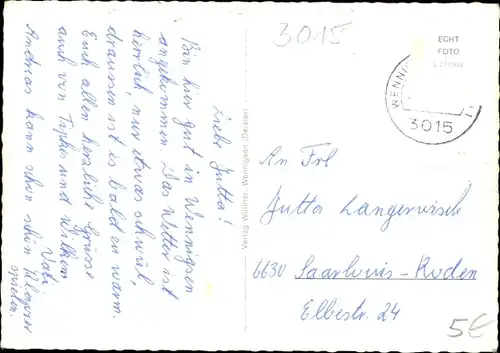 Liebe Jutta!
Bin hier gut in Wennigsen
angekommen. Das Wetter ist
herrlich nur etwas schwül,
draussen ist es bald zu warm.
Euch allen herzliche Grüsse
auch von und
Vati
Andreas kann schon schön
3015
ECHT
FOTO
WENNIG
3015
Verlag Wennigsen (Deister)
An Frl
Jutta Langerwisch
6630 Saarlouis-Roden
Elbestr. 24
5€